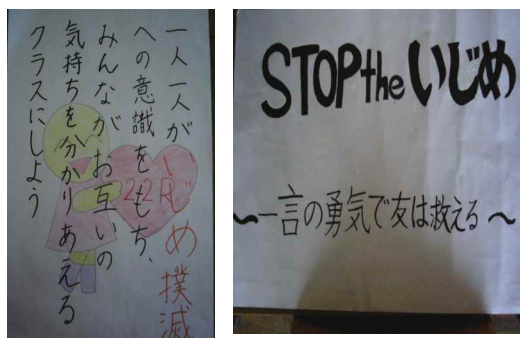 一人一人がいじめ撲滅
への意識をもち、
みんながお互いの
気持ちを分かりあえる
クラスにしよう
22R
STOP the いじめ
〜一言の勇気で友は救える〜